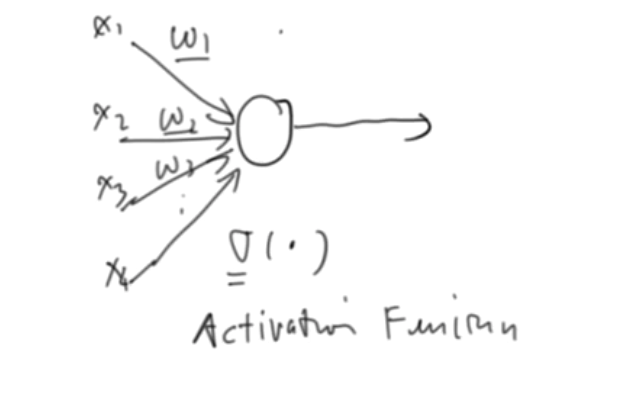 x1 w1
x2 w2
x3 w3
x4
σ(·)
Activation Function